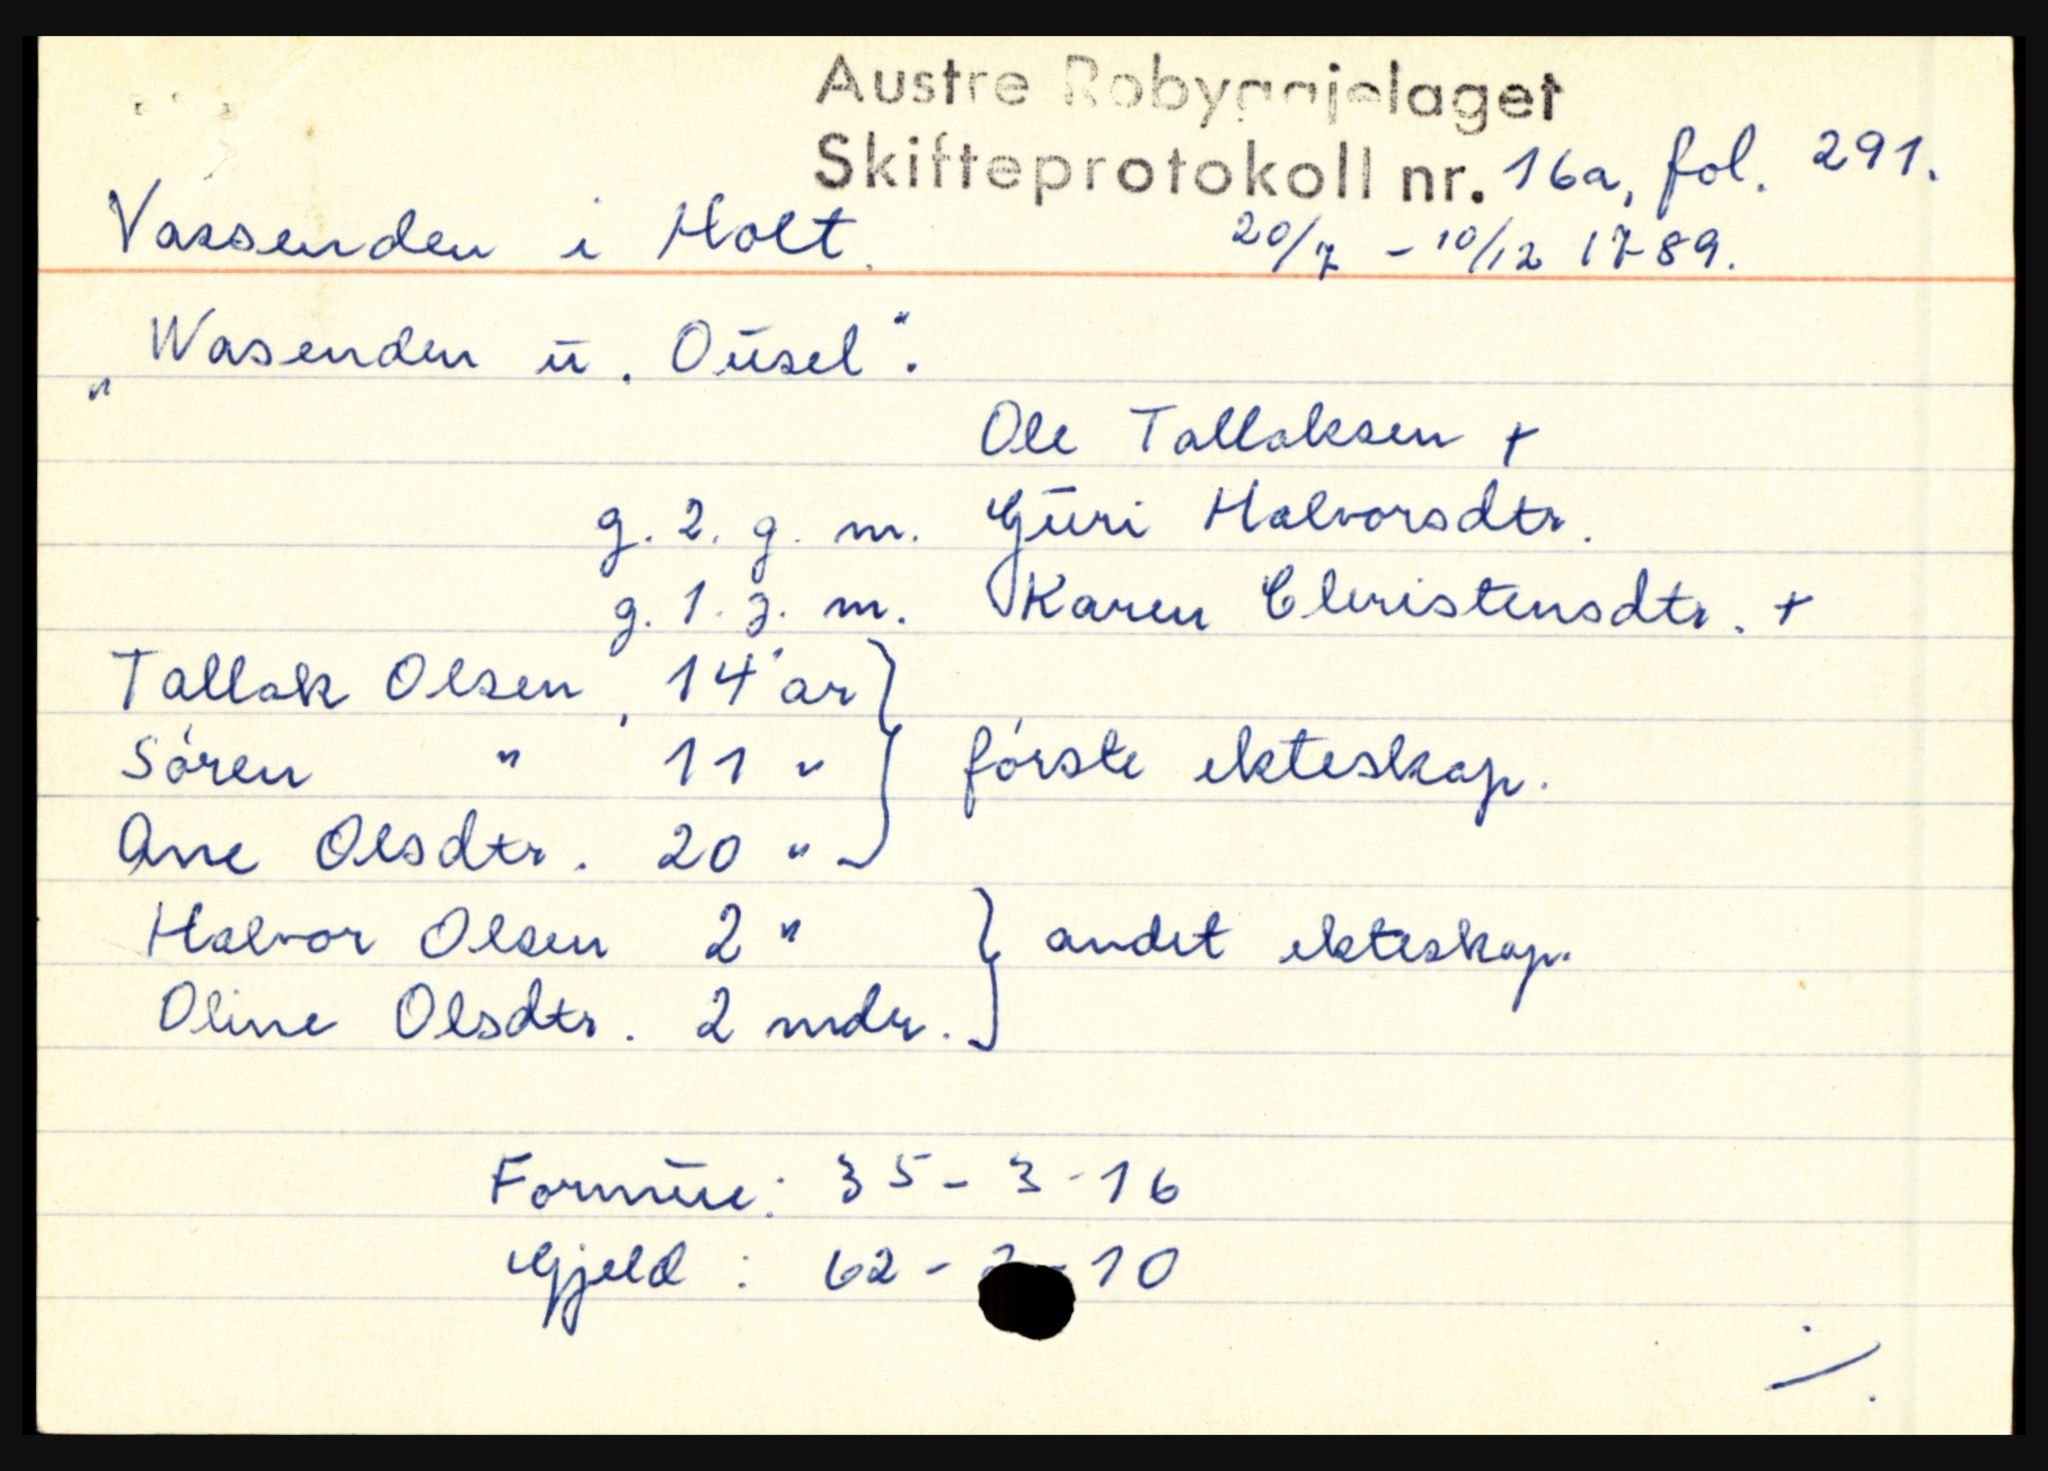 Austre Robyggjelaget
Skifteprotokoll nr. 16a, fol. 291.
Vassenden i Holt. 20/7 - 10/12 1789.
„Wasenden ū. Oūsel".
Ole Tallaksen +
g. 2. g. m. Gūri Halvorsdtr.
g. 1. g. m. Karen Christensdtr. +
Tallak Olsen, 14 år
Sóren " 11 " } fórste ekteskap.
Ane Olsdtr. 20 "
Halvor Olsen 2 " } andet ekteskap.
Oline Olsdtr. 2 mdr.
Formūe: 35 - 3 - 16
Gjeld : 62 - - 10